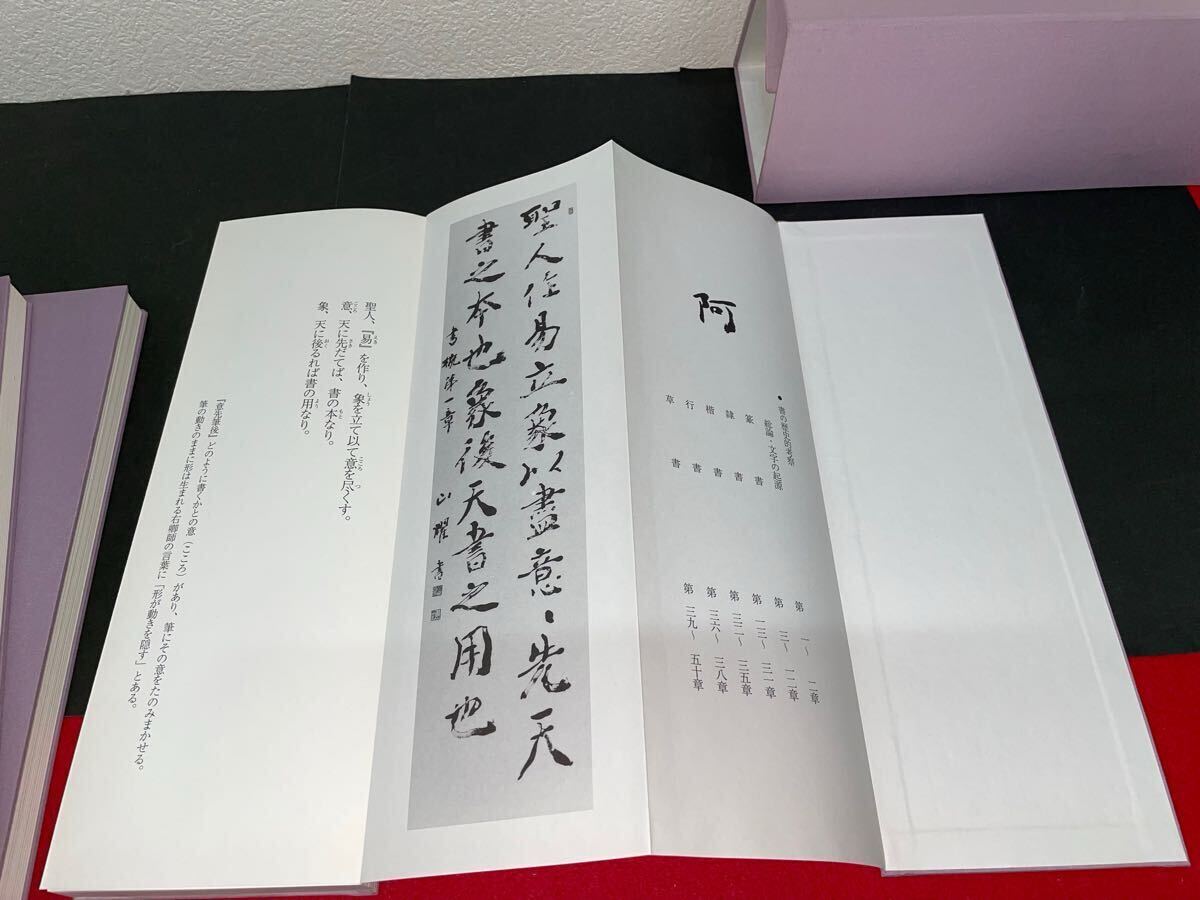 阿
・書の歴史的考察
総論・文字の起源 第 一〜 二章
篆書 第 三〜 一二章
隷書 第 一三〜 三一章
楷書 第 三二〜 三五章
行書 第 三六〜 三八章
草書 第 三九〜 五十章
聖人作易立象以盡意〻先天
書之本也象後天書之用也
書概第一章 山耀書
聖人、『易』を作り、象を立て以て意を尽くす。
意、天に先だてば、書の本なり。
象、天に後るれば書の用なり。
『意先筆後』とのように書くかとの意（こころ）があり、筆にその意をたのみまかせる。
筆の動きのままに形は生まれる右卿師の言葉に「形が動きを隠す」とある。